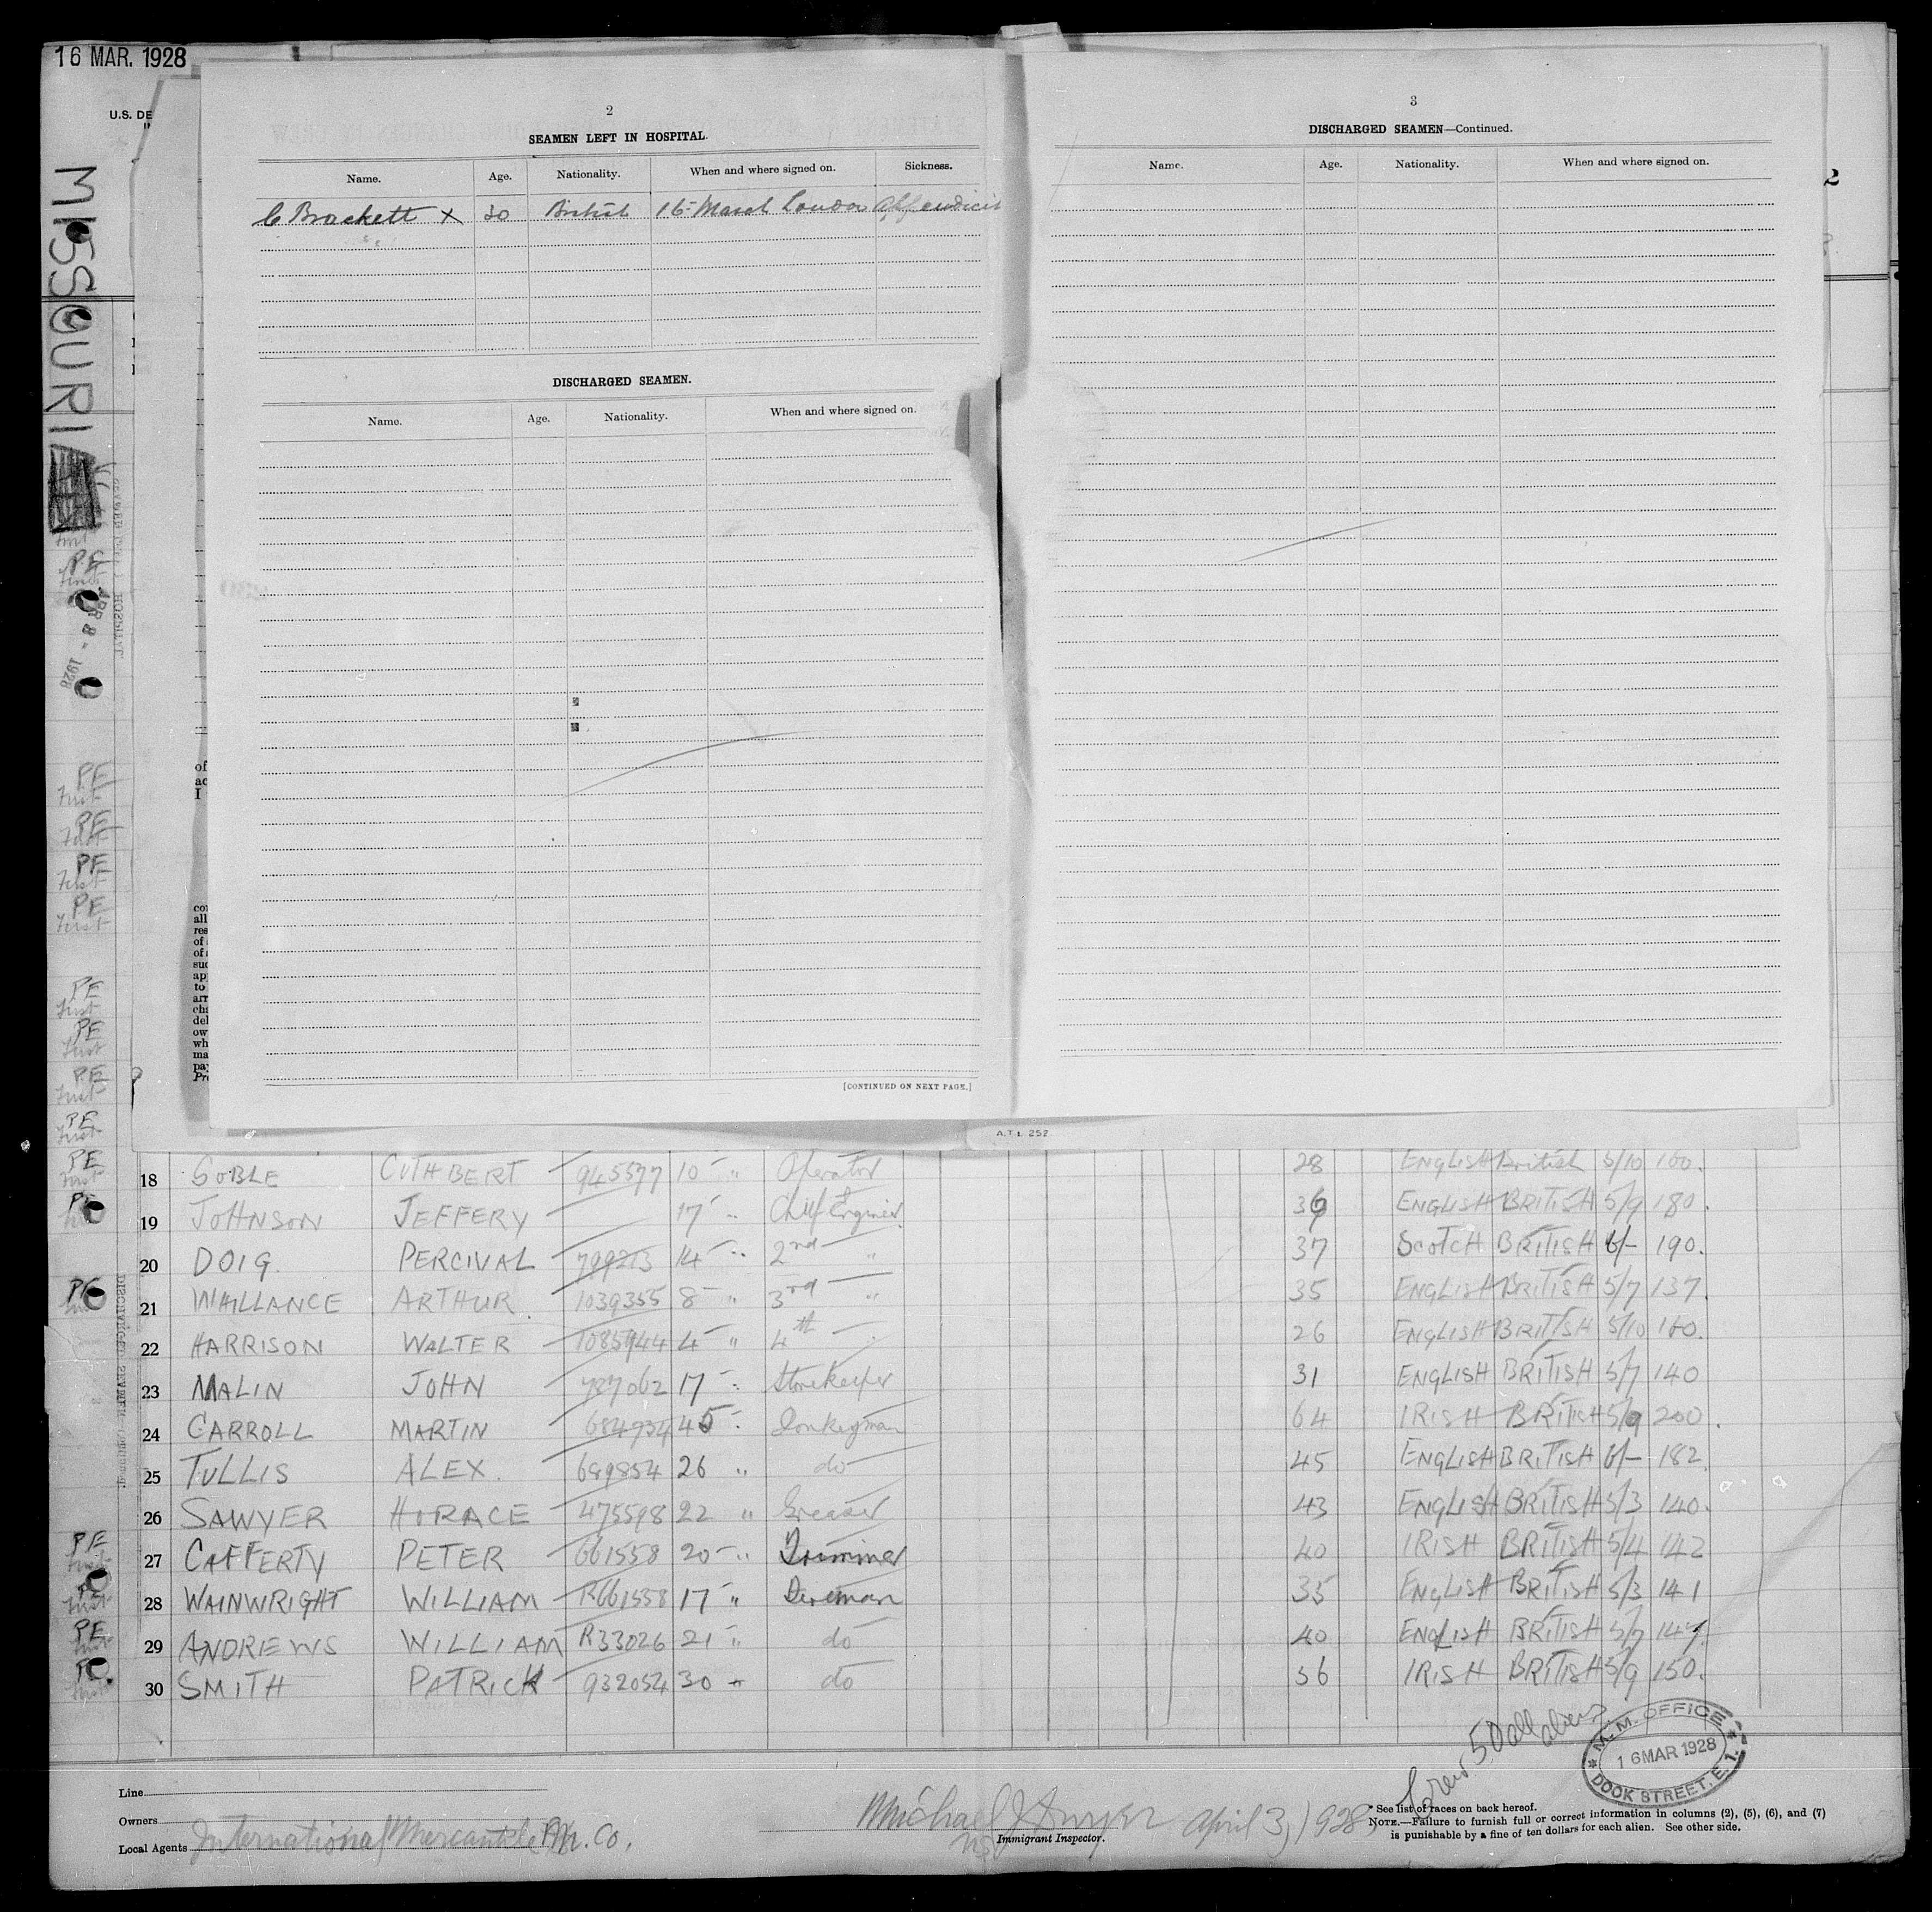 16 MAR. 1928
U.S. DE
MISSOURI
2
SEAMEN LEFT IN HOSPITAL.
Name. Age. Nationality. When and where signed on. Sickness.
C Brackett x 30 British 16 March London Appendicit
DISCHARGED SEAMEN.
Name. Age. Nationality. When and where signed on.
[CONTINUED ON NEXT PAGE.]
3
DISCHARGED SEAMEN—Continued.
Name. Age. Nationality. When and where signed on.
2
of
ac
I
con
all
res
of
of
suc
ap
to
arr
cha
del
ow
wh
ma
pay
Pro
APR 8 - 1928
PE
First
PE
First
PE
First
PE
First
PE
First
PE
First
PE
First
PE
First
PE
First
PE
First
A.T.L. 252
18 GOBLE CUTHBERT 945577 10 " Operator 28 ENGLISH British 5/10 160.
19 JOHNSON JEFFERY 17 " Chief Engineer 39 ENGLISH BRITISH 5/9 180.
20 DOIG PERCIVAL 799273 14 " 2nd " 37 SCOTCH BRITISH 6/- 190.
21 WHILLANCE ARTHUR 1039355 8 " 3rd " 35 ENGLISH BRITISH 5/7 137.
22 HARRISON WALTER 1085944 4 " 4th " 26 ENGLISH BRITISH 5/10 160.
23 MALIN JOHN 787062 17 " Storekeeper 31 ENGLISH BRITISH 5/7 140
24 CARROLL MARTIN 684934 45 " Donkeyman 64 IRISH BRITISH 5/9 200.
25 TULLIS ALEX. 689854 26 " do 45 ENGLISH BRITISH 6/- 182
26 SAWYER HORACE 475598 22 " Greaser 43 ENGLISH BRITISH 5/3 140.
27 CAFFERTY PETER 661558 20 " Trimmer 40 IRISH BRITISH 5/4 142
28 WAINWRIGHT WILLIAM R661558 17 " Fireman 35 ENGLISH BRITISH 5/3 141
29 ANDREWS WILLIAM R33026 21 " do 40 ENGLISH BRITISH 5/7 147.
30 SMITH PATRICK 932054 30 " do 56 IRISH BRITISH 5/9 150.
Crew 50 all aliens
M.M. OFFICE
16 MAR 1928
DOCK STREET, E.1.
Line
Owners
Local Agents International Mercantile M. Co.
Michael J Dwyer April 3, 1928
Immigrant Inspector.
* See list of races on back hereof.
NOTE.—Failure to furnish full or correct information in columns (2), (5), (6), and (7)
is punishable by a fine of ten dollars for each alien. See other side.